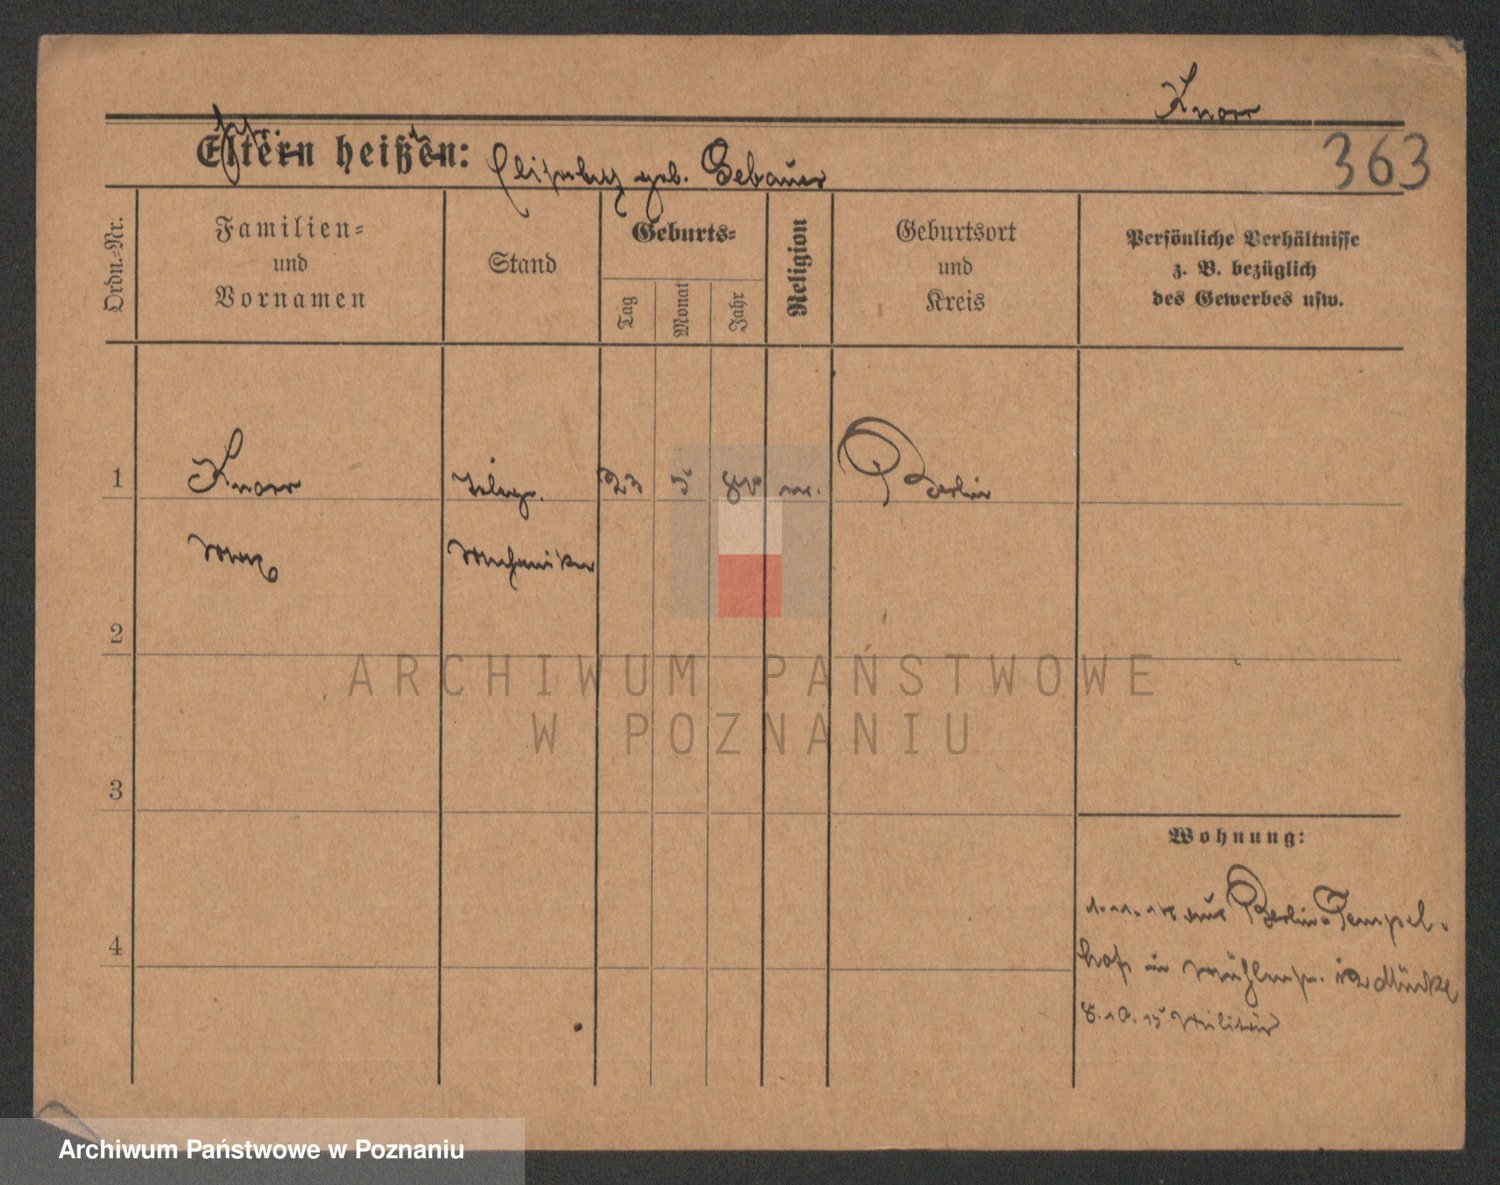 Knorr
363
Eltern heißen: Elisabeth geb. Gebauer
Ordn.-Nr.
Familien-
und
Vornamen
Stand
Geburts-
Tag
Monat
Jahr
Religion
Geburtsort
und
Kreis
Persönliche Verhältnisse
z. B. bezüglich
des Gewerbes usw.
1
Knorr
Telegr.
23
5
Berlin
Max
Mechaniker
2
ARCHIWUM PAŃSTWOWE
W POZNANIU
3
Wohnung:
1.11.14 aus Berlin-Tempel-
4
hof in Mühlenstr. 12 Mücke
8.10.15 Militär
Archiwum Państwowe w Poznaniu